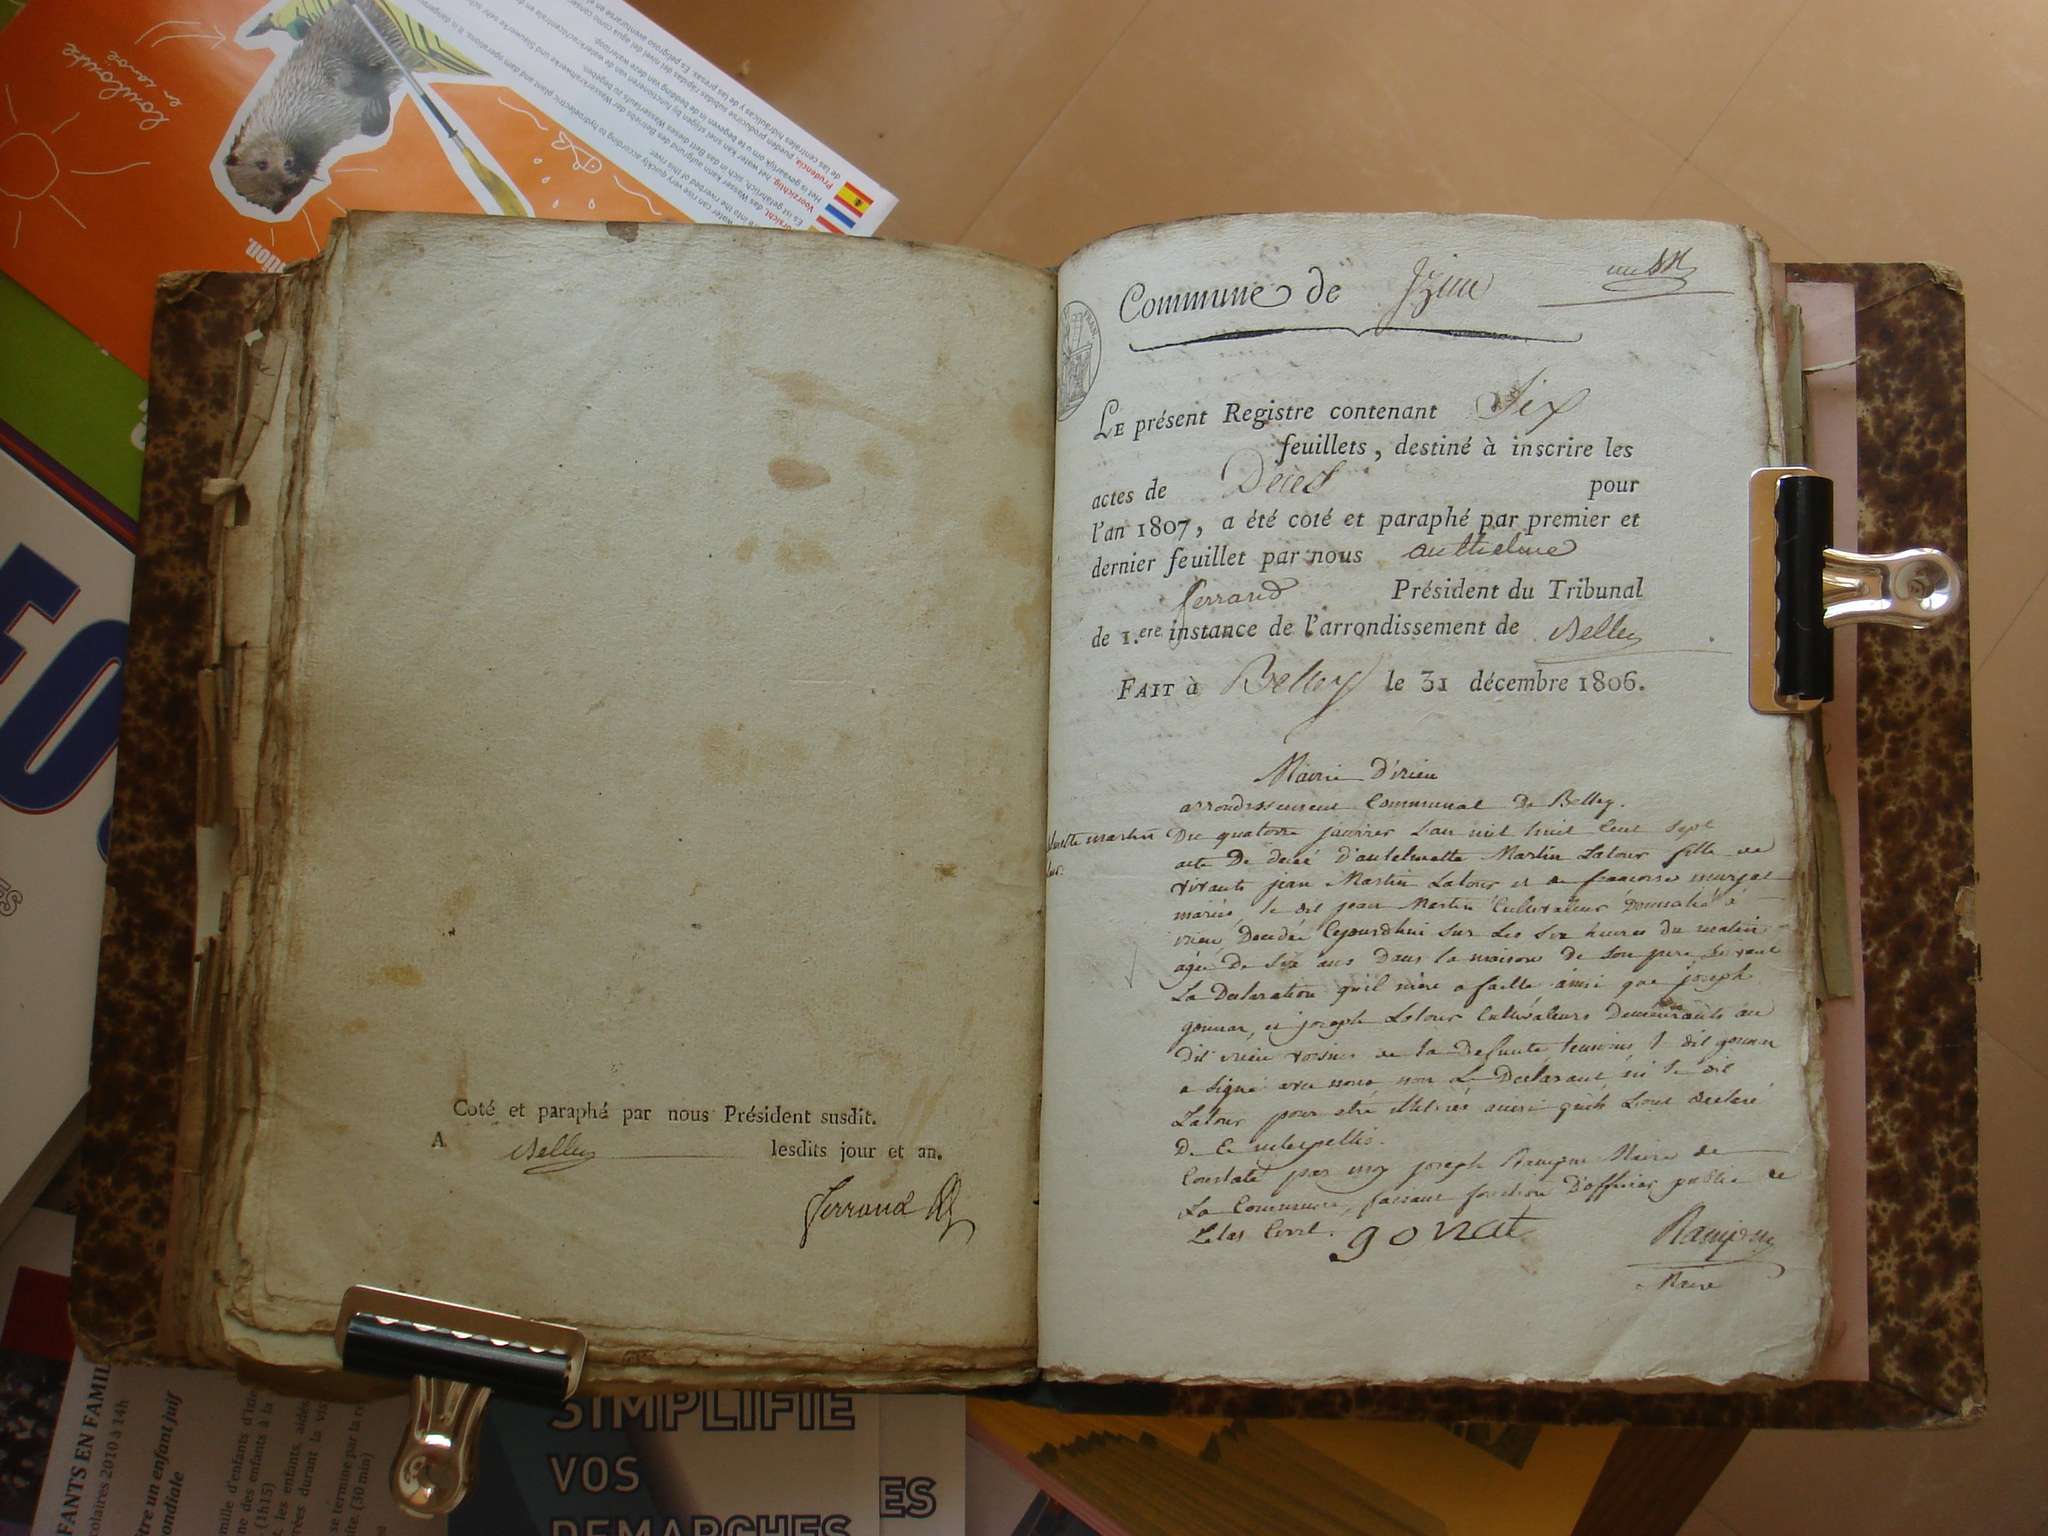 Coté et paraphé par nous Président susdit.
A Belley lesdits jour et an.
Ferrand
Commune de Izieu
LE présent Registre contenant Six
feuillets, destiné à inscrire les
actes de Décès pour
l'an 1807, a été coté et paraphé par premier et
dernier feuillet par nous anthelme
ferrand Président du Tribunal
de 1.ere instance de l'arrondissement de Belley
FAIT à Belley le 31 décembre 1806.
Mairie D'izieu
arrondissement Communal De Belley.
Du quatorze janvier l'an mil huit Cent Sept
acte De décé d'antelmette Martin Latour fille de
vivants jean Martin Latour et de francoise
mariés, le dit jean Martin Cultivateur Domicilié à
izieu, Décédée Cejourdhui sur les Six heures du matin
agée De Six ans Dans la maison de Son pere Suivant
La Declaration qu'il nous a faitte ainsi que joseph
gonnat, et joseph Latour Cultivateurs Demeurants au
dit izieu voisins de la Defunte temoins le dit gonnat
a Signé avec nous non Le Déclarant ni le dit
Latour pour etre illitérés ainsi qu'ils L'ont déclaré
De Ce interpellés.
Constaté par moy joseph Rampon Maire de
La Commune, faisant fonction D'officier public de
Letat Civil.
gonat
Rampon
Maire
martin
rouloute
en canoë
water can rise very quickly according to hydroelectric plant and dam operations.
Prudencia
Voorzichtig
SIMPLIFIE
VOS
DEMARCHES
ES
FANTS EN FAMIL
colaires 2010 à 14h
tre un enfant juif
ondiale